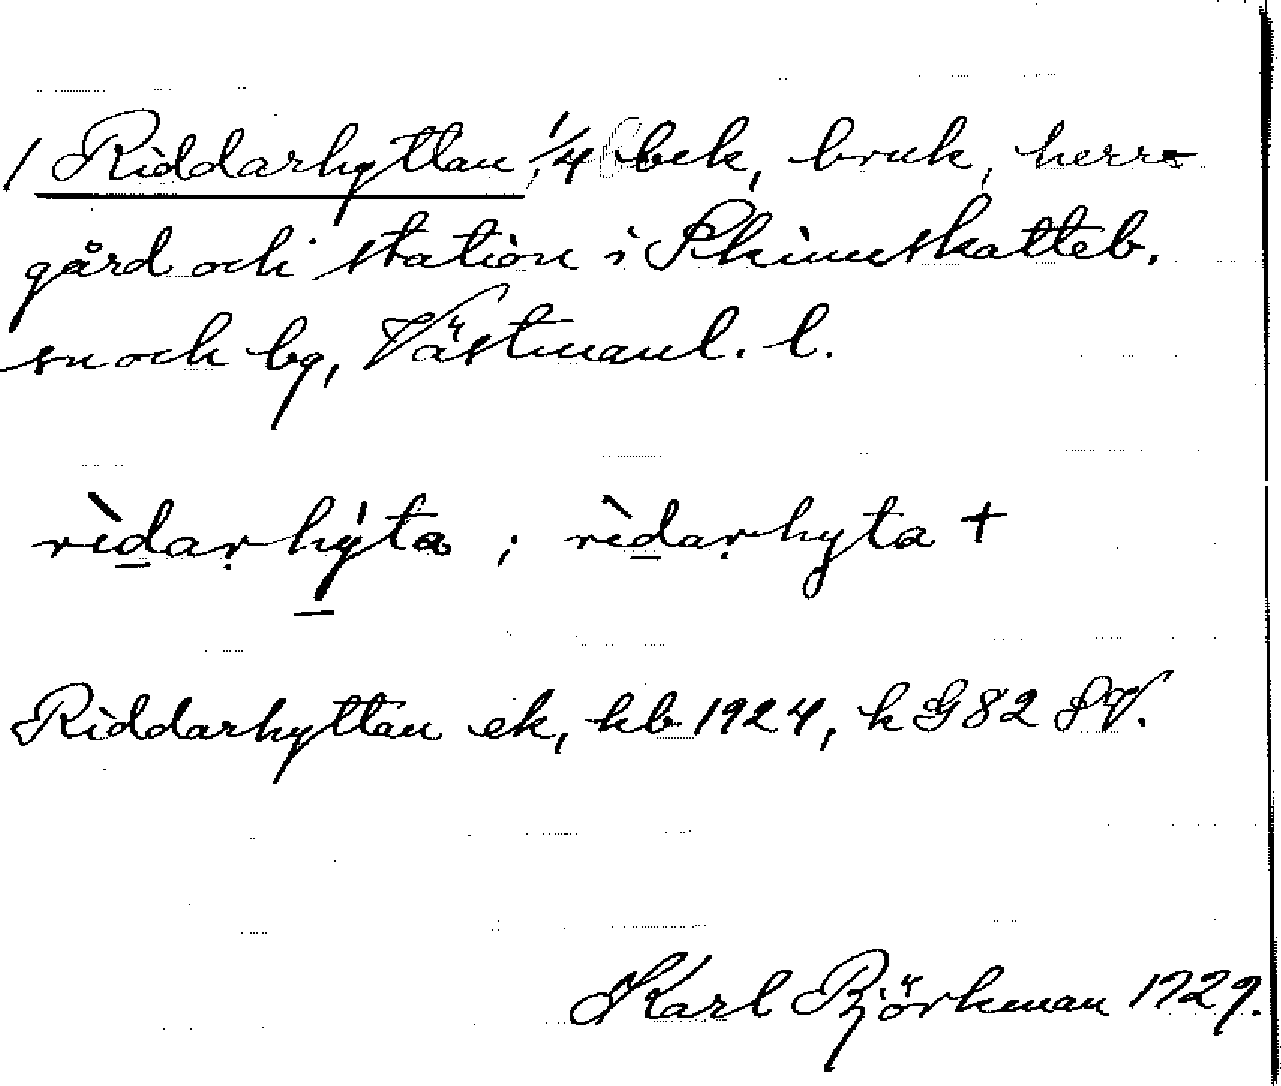 1 Riddarhyttan, 1/4 bek, bruk, herr=
gård och station i Skinnskatteb.
sn och bg, Västmanl. l.
rìdarhýta ; rìdarhyta +
Riddarhyttan ek, hb 1924, k G82 SV.
Karl Björkman 1929.